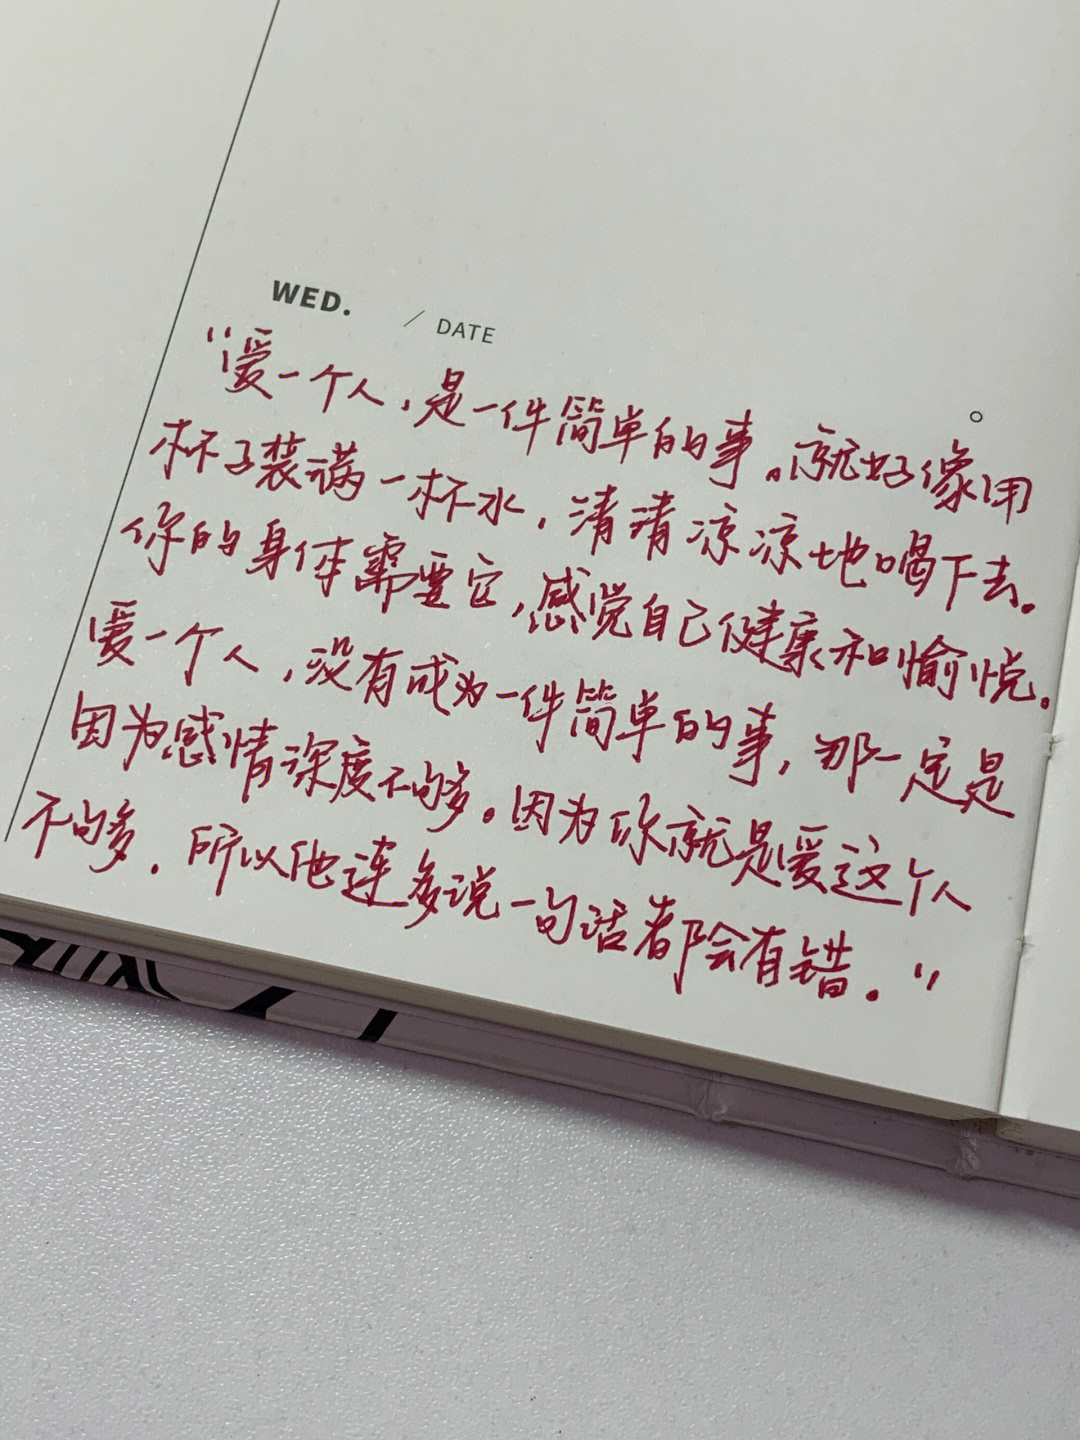 WED. / DATE
“爱一个人，是一件简单的事。就好像用
杯子装满一杯水，清清凉凉地喝下去。
你的身体需要它，感觉自己健康和愉悦。
爱一个人，没有成为一件简单的事，那一定是
因为感情深度不够。因为你就是爱这个人
不够，所以他连多说一句话都会有错。”